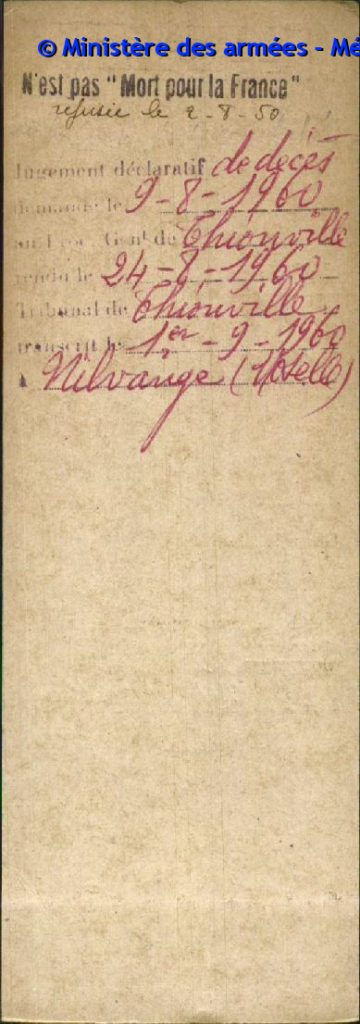 © Ministère des armées - Mé
N'est pas "Mort pour la France"
refusée le 2-8-50
Jugement déclaratif de décès
demandé le 9-8-1960
au Proc. Genl de Thionville
rendu le 24-8-1960
Tribunal de Thionville
transcrit le 1er-9-1960
à Nilvange (Moselle)